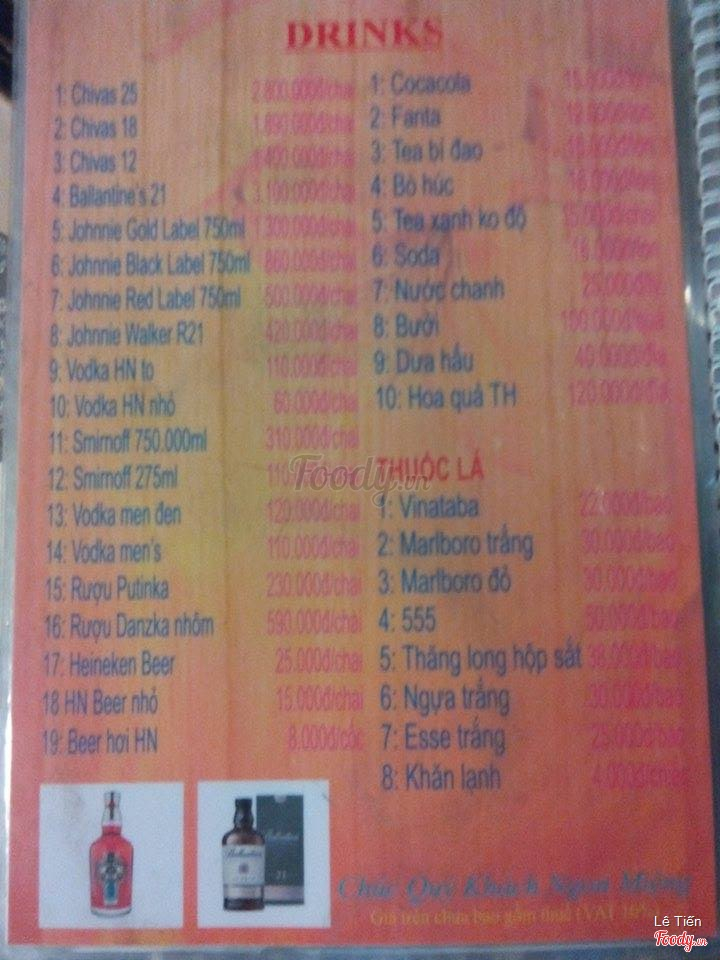 DRINKS
1: Chivas 25 2.800.000đ/chai
2: Chivas 18 1.690.000đ/chai
3: Chivas 12 1.400.000đ/chai
4: Ballantine's 21 3.100.000đ/chai
5: Johnnie Gold Label 750ml 1.300.000đ/chai
6: Johnnie Black Label 750ml 860.000đ/chai
7: Johnnie Red Label 750ml 500.000đ/chai
8: Johnnie Walker R21 420.000đ/chai
9: Vodka HN to 110.000đ/chai
10: Vodka HN nhỏ 60.000đ/chai
11: Smirnoff 750.000ml 310.000đ/chai
12: Smirnoff 275ml
13: Vodka men đen 120.000đ/chai
14: Vodka men's 110.000đ/chai
15: Rượu Putinka 230.000đ/chai
16: Rượu Danzka nhôm 590.000đ/chai
17: Heineken Beer 25.000đ/chai
18 HN Beer nhỏ 15.000đ/chai
19: Beer hơi HN 8.000đ/cốc
1: Cocacola
2: Fanta
3: Tea bí đao
4: Bò húc
5: Tea xanh ko độ 15.000đ/chai
6: Soda
7: Nước chanh
8: Bưởi
9: Dưa hấu 40.000đ/đĩa
10: Hoa quả TH 120.000đ/đĩa
THUỐC LÁ
1: Vinataba 22.000đ/bao
2: Marlboro trắng 30.000đ/bao
3: Marlboro đỏ 30.000đ/bao
4: 555 50.000đ/bao
5: Thăng long hộp sắt 38.000đ/bao
6: Ngựa trắng 30.000đ/bao
7: Esse trắng 25.000đ/bao
8: Khăn lạnh 4.000đ/chiếc
Ballantine's
21
Chúc Quý Khách Ngon Miệng
Giá trên chưa bao gồm thuế (VAT 10%)
Foody.vn
Lê Tiến
Foody.vn